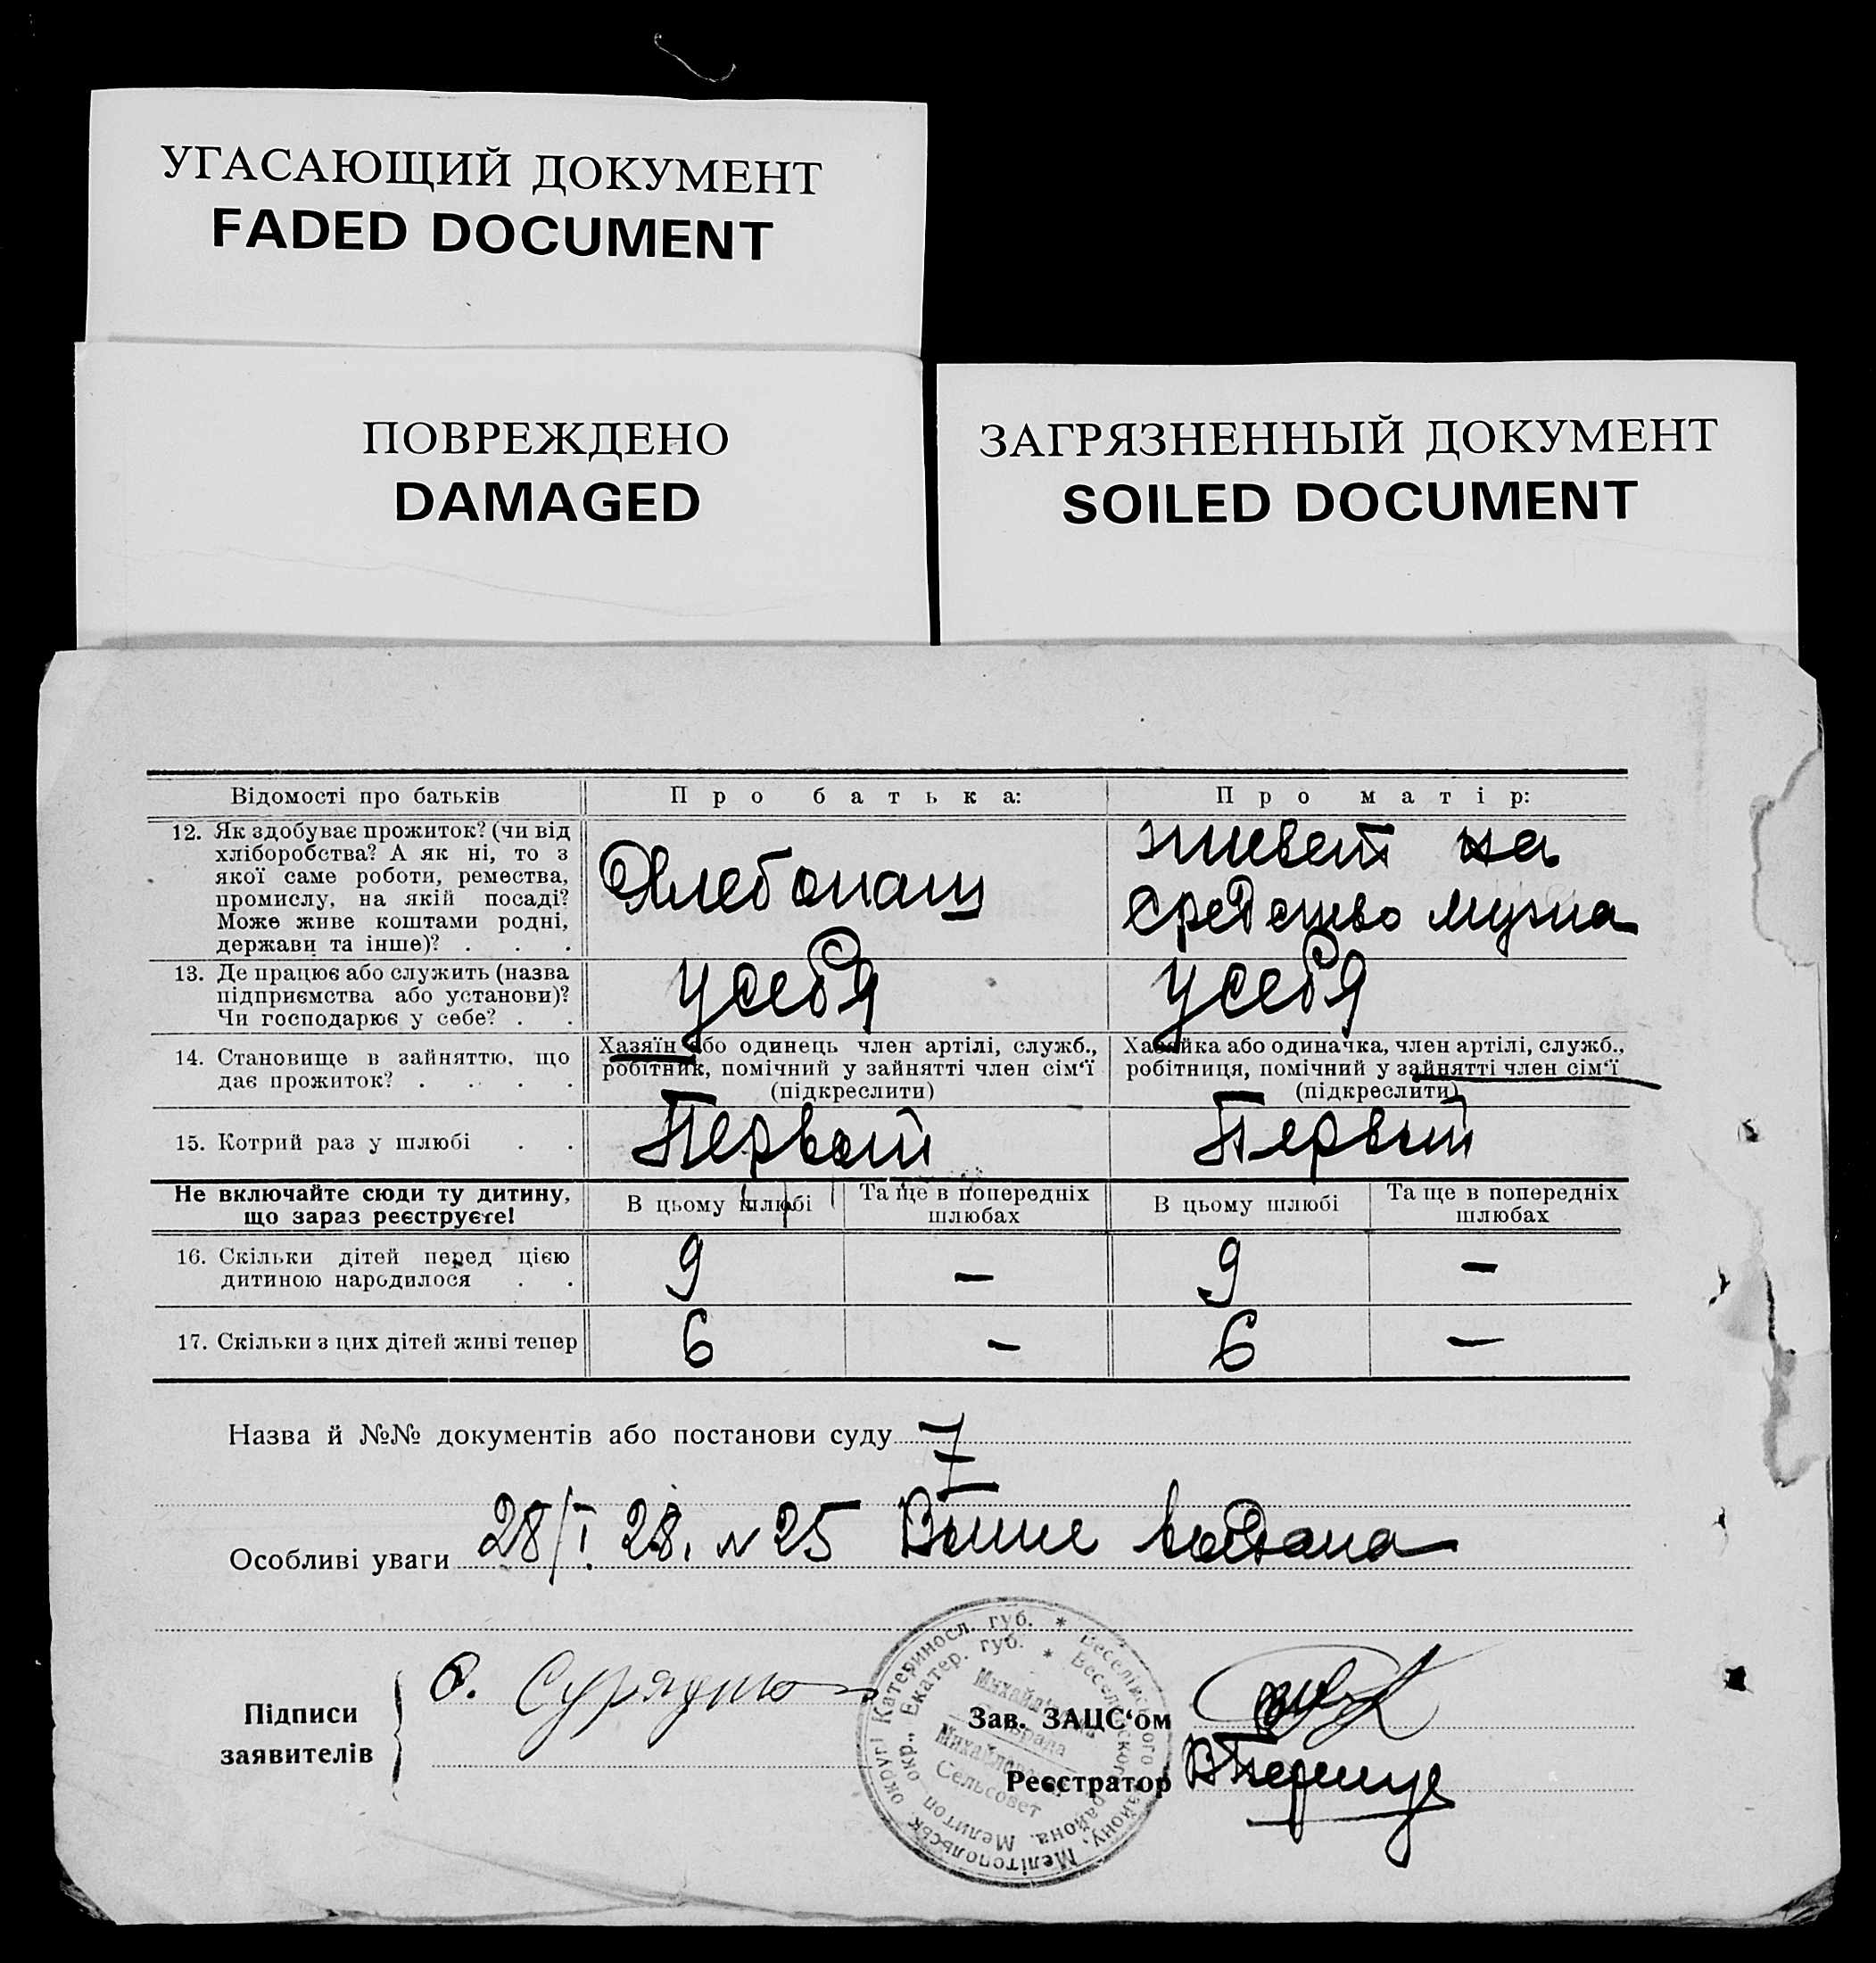 УГАСАЮЩИЙ ДОКУМЕНТ
FADED DOCUMENT
ПОВРЕЖДЕНО
DAMAGED
ЗАГРЯЗНЕННЫЙ ДОКУМЕНТ
SOILED DOCUMENT
Відомості про батьків
Про батька:
Про матір:
12. Як здобуває прожиток? (чи від
хліборобства? А як ні, то з
якої саме роботи, ремества,
промислу, на якій посаді?
Може живе коштами родні,
держави та інше)? . . .
Хлебопаш
живет на
средство мужа
13. Де працює або служить (назва
підприємства або установи)?
Чи господарює у себе? . .
у себя
у себя
14. Становище в зайняттю, що
дає прожиток? . . . .
Хазяїн або одинець член артілі, служб.,
робітник, помічний у зайнятті член сім'ї
(підкреслити)
Хазяйка або одиначка, член артілі, служб.,
робітниця, помічний у зайнятті член сім'ї
(підкреслити)
15. Котрий раз у шлюбі . .
Первый
Первый
Не включайте сюди ту дитину,
що зараз реєструєте!
В цьому шлюбі
Та ще в попередніх
шлюбах
В цьому шлюбі
Та ще в попередніх
шлюбах
16. Скільки дітей перед цією
дитиною народилося . .
9
—
9
—
17. Скільки з цих дітей живі тепер
6
—
6
—
Назва й №№ документів або постанови суду
Особливі уваги 28/I 28. N 25
Підписи
заявителів
Зав. ЗАЦС'ом
Реєстратор
округі Катериносл. губ. * Веселівського району, Мелітопольськ.
окр., Екатер. губ. * Веселовского района, Мелитоп.
Сельсовет